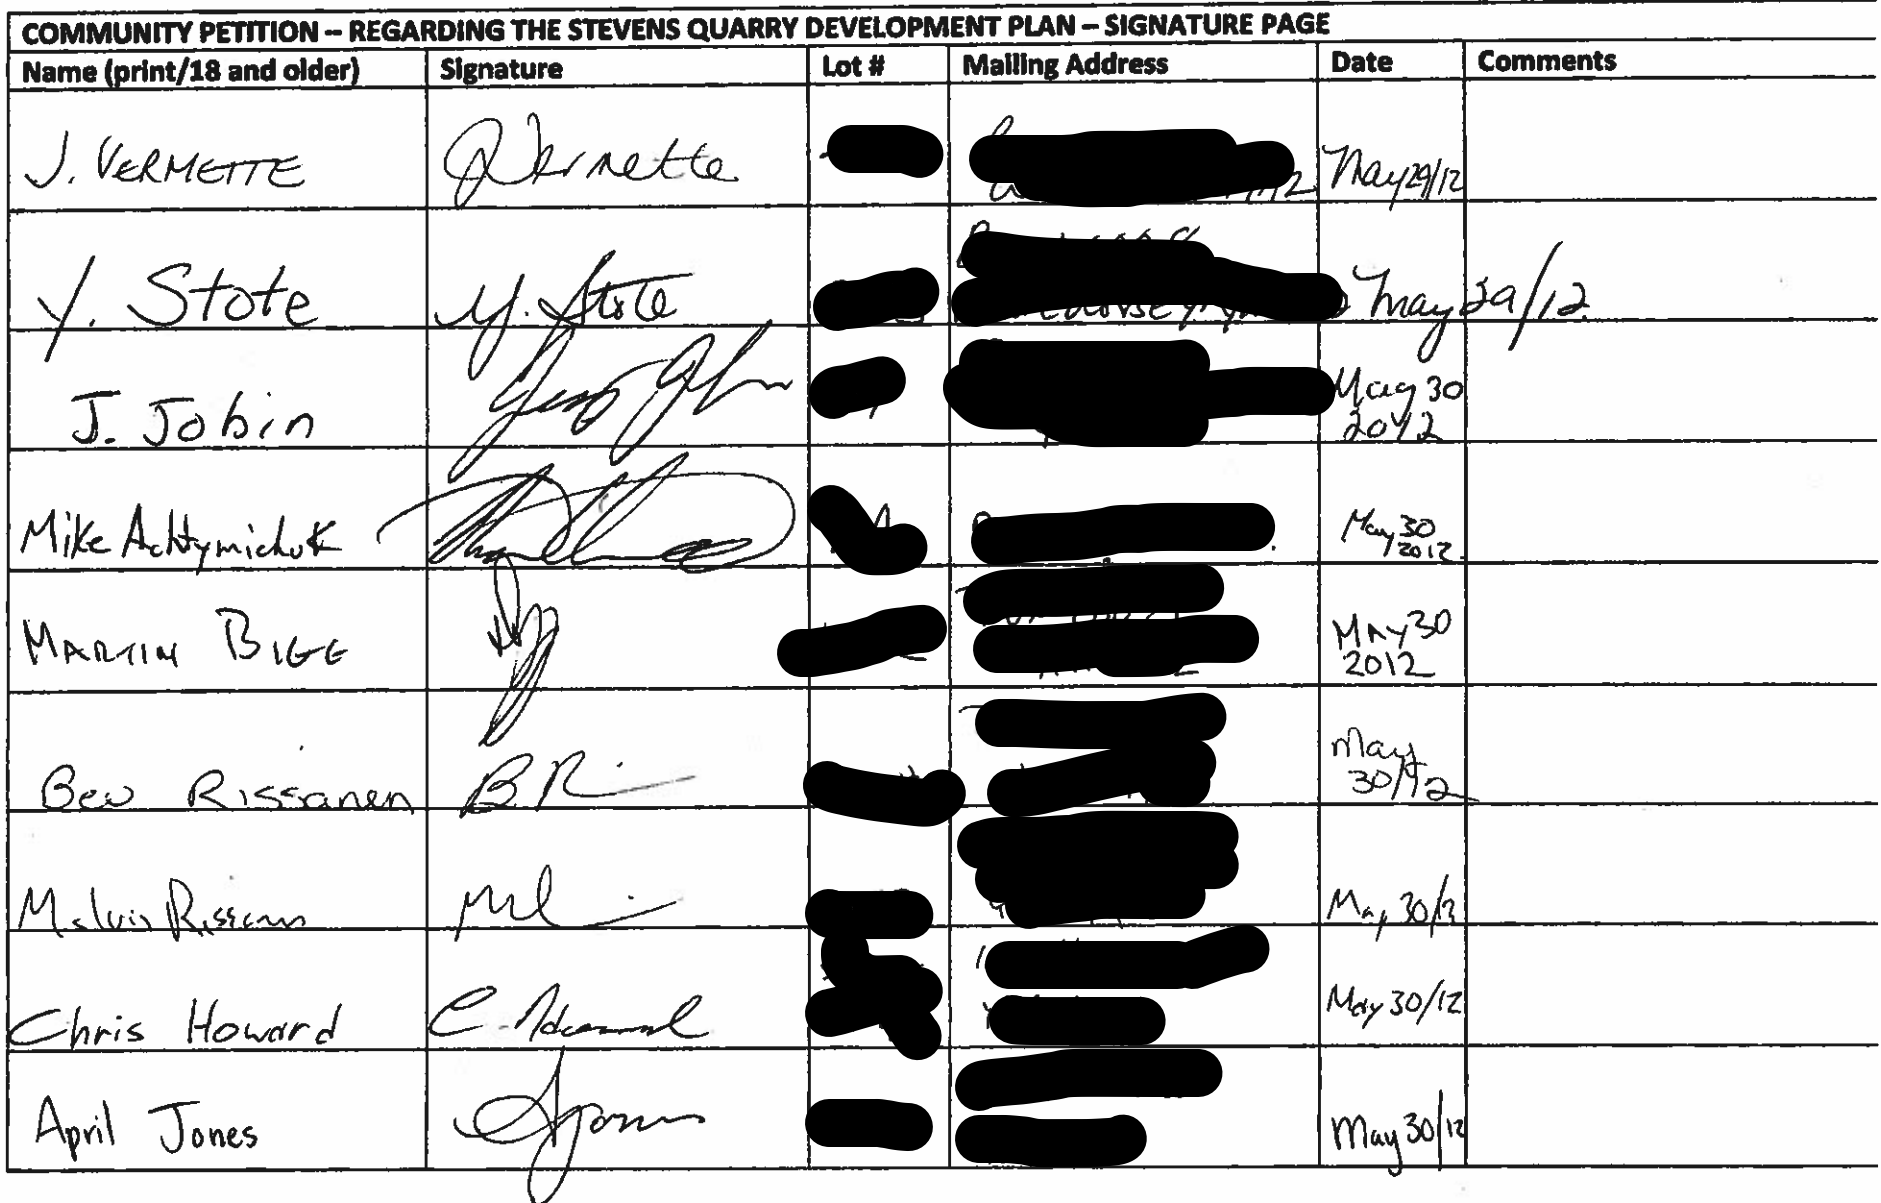 COMMUNITY PETITION – REGARDING THE STEVENS QUARRY DEVELOPMENT PLAN – SIGNATURE PAGE
Name (print/18 and older) Signature Lot # Mailing Address Date Comments
J. VERMETTE JVermette May 29/12
Y. Stote Y. Stote May 29/12
J. Jobin May 30
2012
Mike Achtymichuk May 30
2012
MARTIN BIGG MAY 30
2012
Bev Rissanen B. R May
30/12
Melvin Rissanen May 30/12
Chris Howard C. Howard May 30/12
April Jones AJones May 30/12